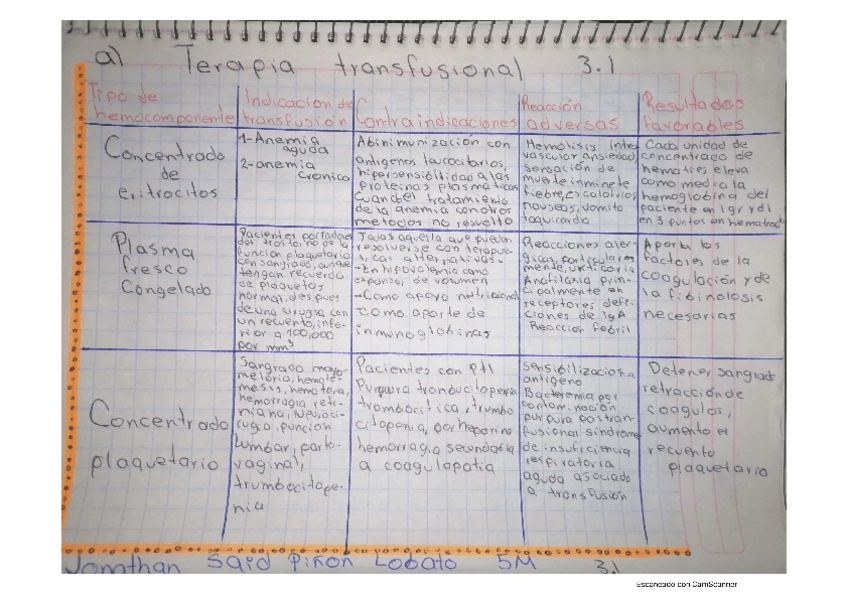 a) Terapia transfusional 3.1
Tipo de
hemocomponente
Indicacion de
transfusión
Contraindicaciones
Reacción
adversas
Resultados
favorables
Concentrado
de
eritrocitos
1-Anemia
aguda
2-anemia
cronica
Abinimunización con
antigenos leucocitarios,
hipersensibilidad a las
proteinas plasmaticas
Cuando el tratamiento
de la anemia con otros
metodos no resuelto
Hemolisis intra
vascular ansiedad,
sensación de
muerte inminete
fiebre, escalofrios,
nauseas, vomito
taquicardia
Cada unidad de
concentrado de
hematies eleva
como media la
hemoglobina del
paciente en 1gr/dl
en 3 puntos en hematocrito
Plasma
fresco
Congelado
Pacientes portadores
del trastorno de la
función plaquetaria
con sangrado, aunque
tengan recuerdo
de plaquetas
normal, despues
de una cirugia con
un recuento, infe-
rior a 100,000
por mm³
Todas aquella que puedan
resolverse con terapeu-
ticas alternativas.
-En hipovolemia como
expansor de volumen
-Como apoyo nutricional
como aporte de
inmunoglobinas
Reacciones aler-
gicas, particulares
mente, urticaria
Anafilaxia prin-
cipalmente en
receptores defi-
ciones de IgA
Reacción Febril
Aporta los
factores de la
coagulación y de
la fibinolosis
necesarias
Concentrado
plaquetario
Sangrado mayo-
melería, hemate-
mesis, hematuria,
hemorragia reti-
niana, Neuroci-
rugia, punción
Lumbar, parto-
vaginal,
trumbocitope-
nia
Pacientes con PTI
Purpura trombocitopenia
trombocitica, trumbo
citopenia, por heparina
hemorragia secundaria
a coagulapotia
sensibilización a
antigeno
Bacteremia por
contaminación
purpura postran-
fusional sindrome
de insuficiencia
respiratoria
aguda asociado
a transfusión
Detener sangrad
retracción de
coagulos,
aumento el
recuento
plaquetario
Jonathan Said Piñon Lobato 5M 3.1
Escaneado con CamScanner